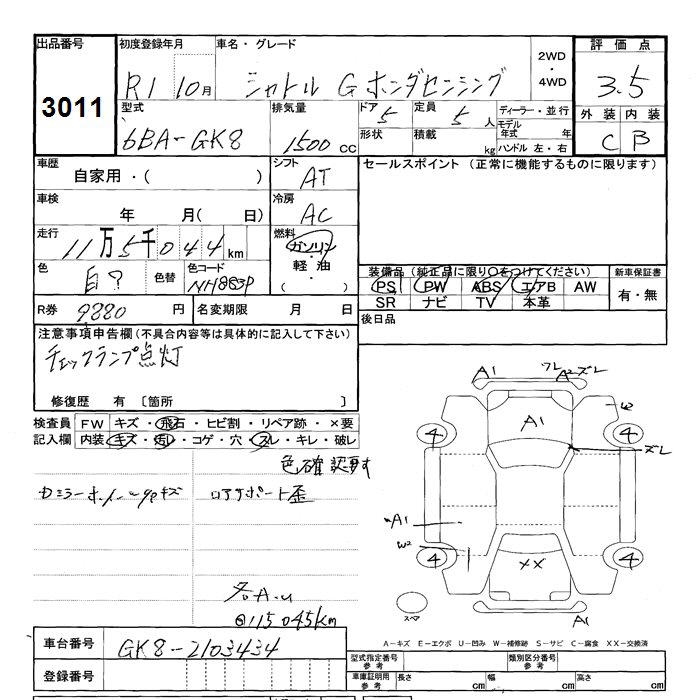 出品番号 初度登録年月 車名・グレード 評価点
3011 R1 10月 シャトル G ホンダセンシング 2WD・4WD 3.5
型式 排気量 ドア 5 定員 5人 ディーラー・並行 外装 内装
6BA-GK8 1500cc 形状 積載 kg モデル年式 年 C B
ハンドル 左・右
車歴 シフト セールスポイント (正常に機能するものに限ります)
自家用・( ) AT
車検 冷房
年 月(日) AC
走行 燃料
11万5千044km ガソリン・軽油・( )
色 色替 色コード 装備品(純正品に限り○をつけてください) 新車保証書
白? NH883P PS PW ABS エアB AW 有・無
SR ナビ TV 本革
R券 9880円 名変期限 月 日 後日品
注意事項申告欄(不具合内容等は具体的に記入して下さい)
チェックランプ点灯
修復歴 有 〔箇所 〕
検査員 FW キズ・飛石・ヒビ割・リペア跡・×要
記入欄 内装 キズ・汚レ・コゲ・穴・スレ・キレ・破レ
色確認要す
ロアサポート歪
A1 フレ A2ズレ
A1 W2
4 4
ズレ
A1
W2 XX
4 4
スペア A1
@115045km
A-キズ E-エクボ U-凹み W-補修跡 S-サビ C-腐食 XX-交換済
車台番号 GK8-2103434
登録番号
型式指定番号 参考 類別区分番号 参考
車庫証明用 参考 長さ cm 幅 cm 高さ cm